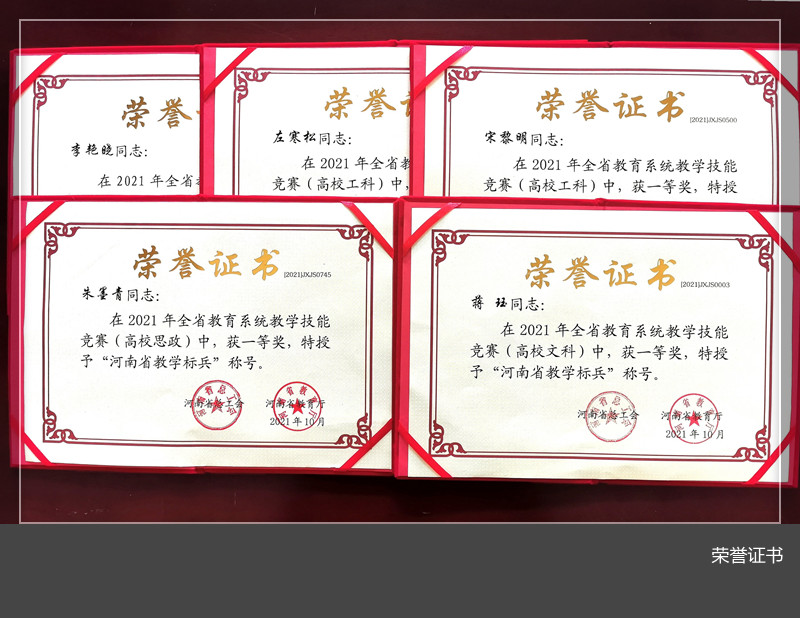 荣誉
李艳晓同志：
在 2021 年全省
荣誉
左寒松同志：
在 2021 年全省教
竞赛（高校工科）中，
荣誉证书
[2021]JXJS0500
宋黎明同志：
在 2021 年全省教育系统教学技能
竞赛（高校工科）中，获一等奖，特授
荣誉证书
[2021]JXJS0745
朱墨青同志：
在 2021 年全省教育系统教学技能
竞赛（高校思政）中，获一等奖，特授
予“河南省教学标兵”称号。
河南省总工会 河南省教育厅
2021 年 10 月
荣誉证书
[2021]JXJS0003
蒋 珏同志：
在 2021 年全省教育系统教学技能
竞赛（高校文科）中，获一等奖，特授
予“河南省教学标兵”称号。
河南省总工会 河南省教育厅
2021 年 10 月
荣誉证书